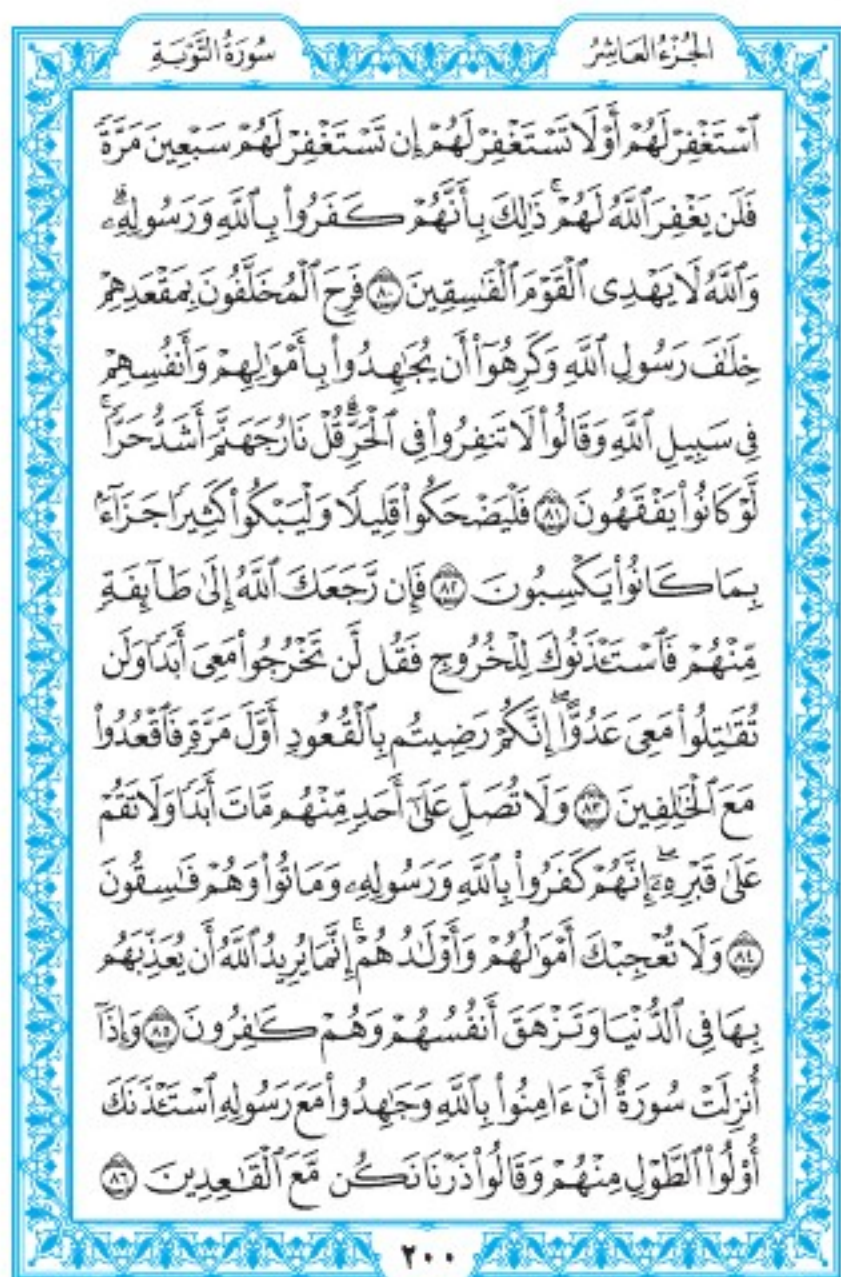 الجُزْءُ العَاشِرُ
سُورَةُ التَّوْبَةِ
ٱسْتَغْفِرْ لَهُمْ أَوْ لَا تَسْتَغْفِرْ لَهُمْ إِن تَسْتَغْفِرْ لَهُمْ سَبْعِينَ مَرَّةً
فَلَن يَغْفِرَ ٱللَّهُ لَهُمْ ۚ ذَٰلِكَ بِأَنَّهُمْ كَفَرُوا۟ بِٱللَّهِ وَرَسُولِهِۦ ۗ
وَٱللَّهُ لَا يَهْدِى ٱلْقَوْمَ ٱلْفَٰسِقِينَ ٨٠ فَرِحَ ٱلْمُخَلَّفُونَ بِمَقْعَدِهِمْ
خِلَٰفَ رَسُولِ ٱللَّهِ وَكَرِهُوٓا۟ أَن يُجَٰهِدُوا۟ بِأَمْوَٰلِهِمْ وَأَنفُسِهِمْ
فِى سَبِيلِ ٱللَّهِ وَقَالُوا۟ لَا تَنفِرُوا۟ فِى ٱلْحَرِّ ۗ قُلْ نَارُ جَهَنَّمَ أَشَدُّ حَرًّا ۚ
لَّوْ كَانُوا۟ يَفْقَهُونَ ٨١ فَلْيَضْحَكُوا۟ قَلِيلًا وَلْيَبْكُوا۟ كَثِيرًا جَزَآءًۢ
بِمَا كَانُوا۟ يَكْسِبُونَ ٨٢ فَإِن رَّجَعَكَ ٱللَّهُ إِلَىٰ طَآئِفَةٍ
مِّنْهُمْ فَٱسْتَـْٔذَنُوكَ لِلْخُرُوجِ فَقُل لَّن تَخْرُجُوا۟ مَعِىَ أَبَدًا وَلَن
تُقَٰتِلُوا۟ مَعِىَ عَدُوًّا ۖ إِنَّكُمْ رَضِيتُم بِٱلْقُعُودِ أَوَّلَ مَرَّةٍ فَٱقْعُدُوا۟
مَعَ ٱلْخَٰلِفِينَ ٨٣ وَلَا تُصَلِّ عَلَىٰٓ أَحَدٍ مِّنْهُم مَّاتَ أَبَدًا وَلَا تَقُمْ
عَلَىٰ قَبْرِهِۦٓ ۖ إِنَّهُمْ كَفَرُوا۟ بِٱللَّهِ وَرَسُولِهِۦ وَمَاتُوا۟ وَهُمْ فَٰسِقُونَ
٨٤ وَلَا تُعْجِبْكَ أَمْوَٰلُهُمْ وَأَوْلَٰدُهُمْ ۚ إِنَّمَا يُرِيدُ ٱللَّهُ أَن يُعَذِّبَهُم
بِهَا فِى ٱلدُّنْيَا وَتَزْهَقَ أَنفُسُهُمْ وَهُمْ كَٰفِرُونَ ٨٥ وَإِذَآ
أُنزِلَتْ سُورَةٌ أَنْ ءَامِنُوا۟ بِٱللَّهِ وَجَٰهِدُوا۟ مَعَ رَسُولِهِ ٱسْتَـْٔذَنَكَ
أُو۟لُوا۟ ٱلطَّوْلِ مِنْهُمْ وَقَالُوا۟ ذَرْنَا نَكُن مَّعَ ٱلْقَٰعِدِينَ ٨٦
٢٠٠